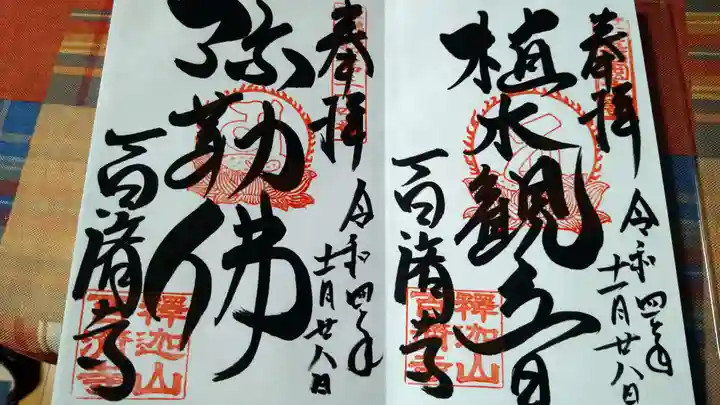 奉拝
植木観音
百済寺
令和四年
十一月廿八日
釋迦山
百済寺
奉拝
弥勒佛
百済寺
令和四年
十一月廿八日
釋迦山
百済寺